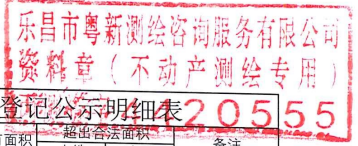 乐昌市粤新测绘咨询服务有限公司
资料章（不动产测绘专用）
登记公示明细表
420555
超出合法面积
面积
备注